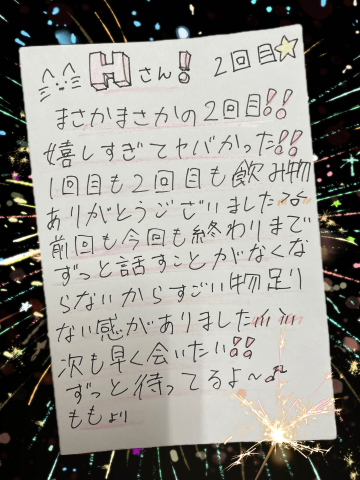 Hさん! 2回目☆
まさかまさかの2回目!!
嬉しすぎてヤバかった!!
1回目も2回目も飲み物
ありがとうございました><
前回も今回も終わりまで
ずっと話すことがなくな
らないからすごい物足り
ない感がありました
次も早く会いたい!!
ずっと待ってるよ〜♫
ももより